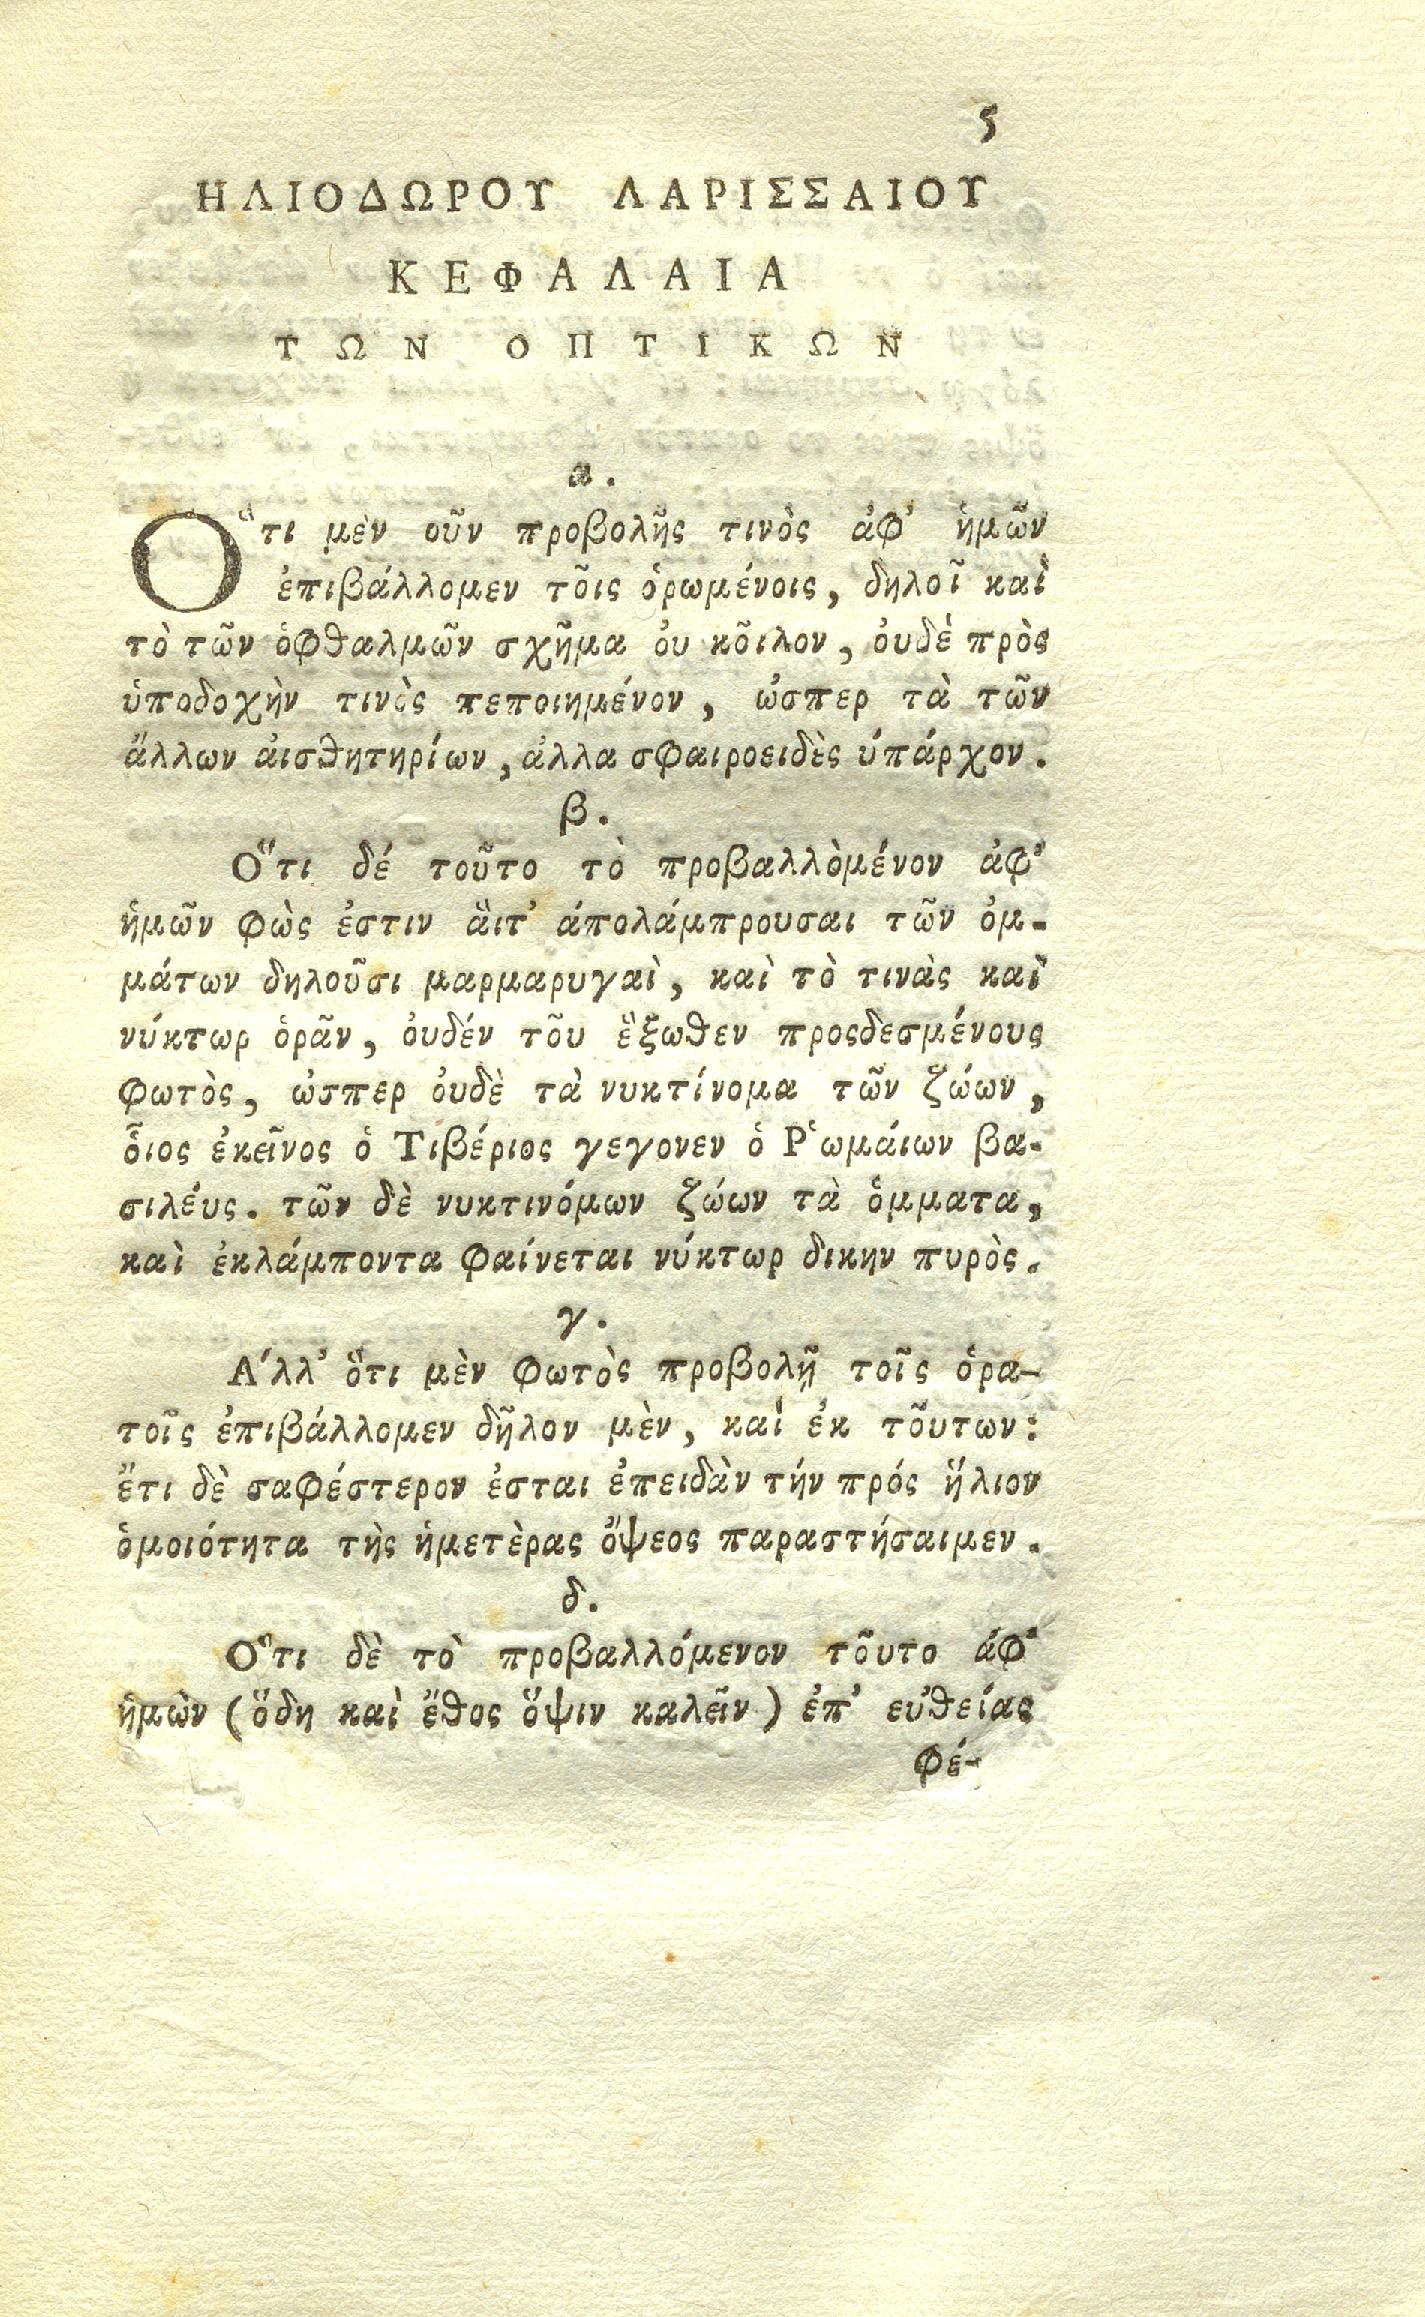 5
ΗΛΙΟΔΩΡΟΥ ΛΑΡΙΣΣΑΙΟΥ
ΚΕΦΑΛΑΙΑ
ΤΩΝ ΟΠΤΙΚΩΝ
α.
Ὅτι μὲν οῦν προβολῆς τινὸς ἀφ' ἡμῶν
ἐπιβάλλομεν τõις ὁρωμένοις, δηλοῖ καὶ
τὸ τῶν ὀφθαλμῶν σχῆμα ὀυ κõιλον, ὀυδὲ πρὸς
ὑποδοχὴν τινὸς πεποιημένον, ὠσπερ τὰ τῶν
ἄλλων ἀισθητηρίων, ἀλλα σφαιροειδὲς ύπάρχον.
β.
Ὅτι δέ τοῦτο τὸ προβαλλὸμένον ἀφ'
ἡμῶν φὼς ἐστιν ἅιτ' άπολάμπρουσαι τῶν ὀμ-
μάτων δηλοῦσι μαρμαρυγαὶ, καὶ τὸ τινὰς καὶ
νύκτωρ ὁρᾶν, ὀυδέν τõυ ἔξωθεν προςδεσμένους
φωτὸς, ὠσπερ ὀυδὲ τὰ νυκτίνομα τῶν ζώων,
ὃιος ἐκεῖνος ὁ Τιβέριος γεγονεν ὁ Ῥωμάιων βα-
σιλέυς. τῶν δὲ νυκτινόμων ζώων τὰ ὀμματα,
καὶ ἐκλάμποντα φαίνεται νύκτωρ δικην πυρὸς.
γ.
Αʹλλ' ὅτι μὲν φωτὸς προβολῇ τοῖς ὁρα-
τοῖς ἐπιβάλλομεν δῆλον μὲν, καὶ ἐκ τõυτων:
ἔτι δὲ σαφέστερον ἐσται ἐπειδὰν τήν πρός ἥλιον
ὁμοιότητα τὴς ἡμετὲρας ὄψεος παραστήσαιμεν.
δ.
Ὅτι δὲ τὸ προβαλλόμενον τõυτο ἀφ'
ἡμὼν (ὅδη καὶ ἔθος ὄψιν καλεῖν) ἐπ' ευ'θείας
φέ-